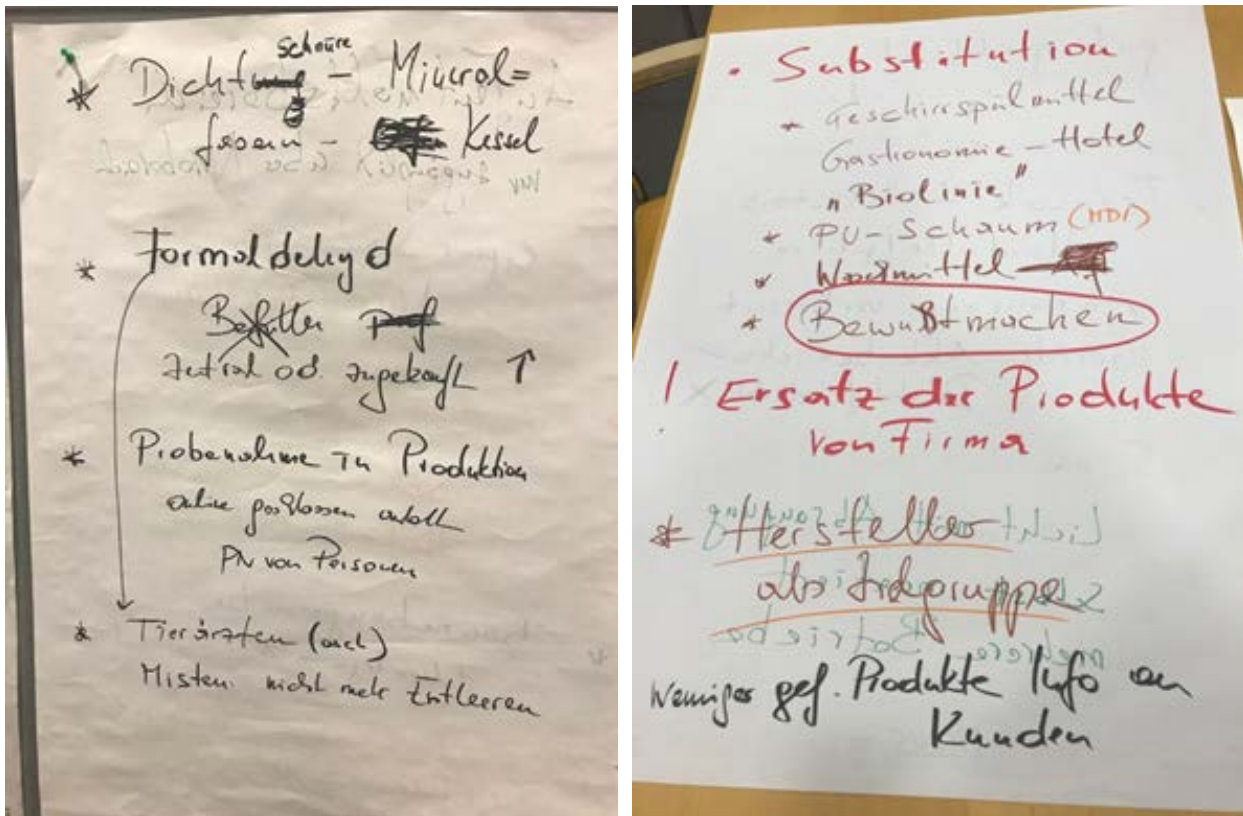 * Dichtschnüre - Mineral=
fasern - Kessel
* Formaldehyd
zentral od. zugekauft ↑
* Probenahme in Produktion
online geschlossen anstatt
PN von Personen
* Tierärzten (auch)
Misten: nicht mehr Entleeren
• Substitution
* Geschirrspülmittel
Gastronomie - Hotel
„Biolinie"
* PU-Schaum (MDI)
* Waschmittel
* Bewußtmachen
! Ersatz der Produkte
von Firma
* Hersteller
als Zielgruppe
Weniger gef. Produkte Info an
Kunden